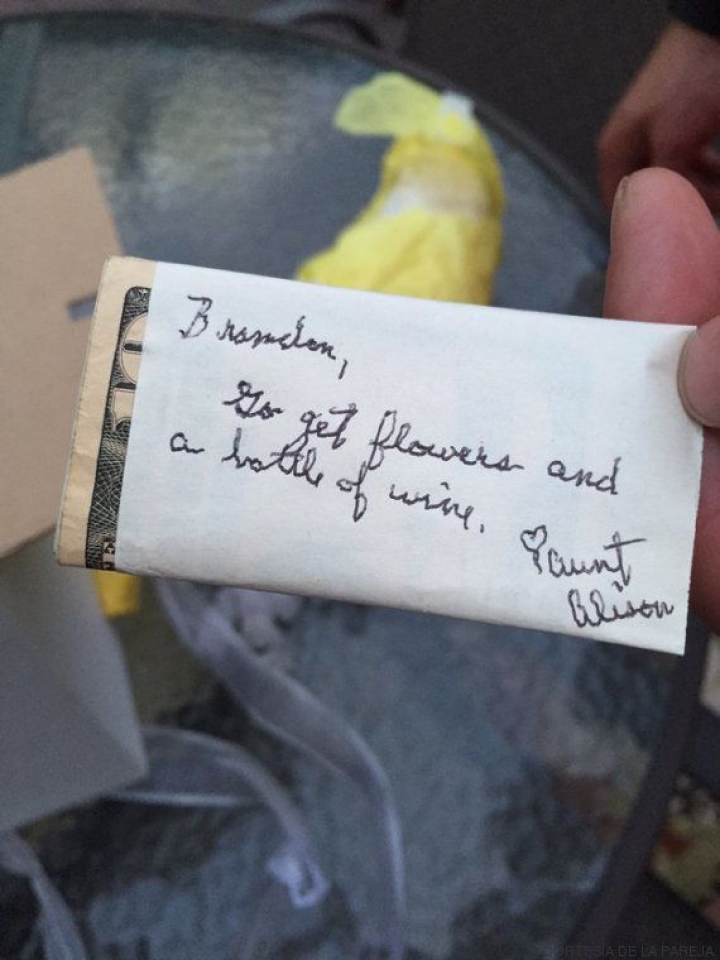 Brandon,
Go get flowers and
a bottle of wine.
♡ aunt
Alison
CORTESÍA DE LA PAREJA